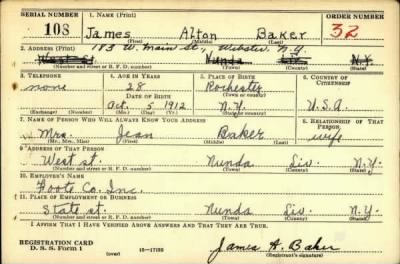 SERIAL NUMBER 1. NAME (Print) ORDER NUMBER
108 James Alton Baker 32
(First) (Middle) (Last)
2. ADDRESS (Print) 113 W. Main St., Webster, N.Y.
West st. Nunda Liv. N.Y.
(Number and street or R. F. D. number) (Town) (County) (State)
3. TELEPHONE 4. AGE IN YEARS 5. PLACE OF BIRTH 6. COUNTRY OF CITIZENSHIP
none 28 Rochester
DATE OF BIRTH (Town or county)
Oct. 5 1912 N.Y. U.S.A.
(Exchange) (Number) (Mo.) (Day) (Yr.) (State or country)
7. NAME OF PERSON WHO WILL ALWAYS KNOW YOUR ADDRESS 8. RELATIONSHIP OF THAT PERSON
Mrs. Jean Baker wife
(Mr., Mrs., Miss) (First) (Middle) (Last)
9. ADDRESS OF THAT PERSON
West st. Nunda Liv. N.Y.
(Number and street or R. F. D. number) (Town) (County) (State)
10. EMPLOYER'S NAME
Foote Co. Inc.
11. PLACE OF EMPLOYMENT OR BUSINESS
State st. Nunda Liv. N.Y.
(Number and street or R. F. D. number) (Town) (County) (State)
I AFFIRM THAT I HAVE VERIFIED ABOVE ANSWERS AND THAT THEY ARE TRUE.
REGISTRATION CARD
D. S. S. Form 1 (over) 16—17105 James A. Baker
(Registrant's signature)